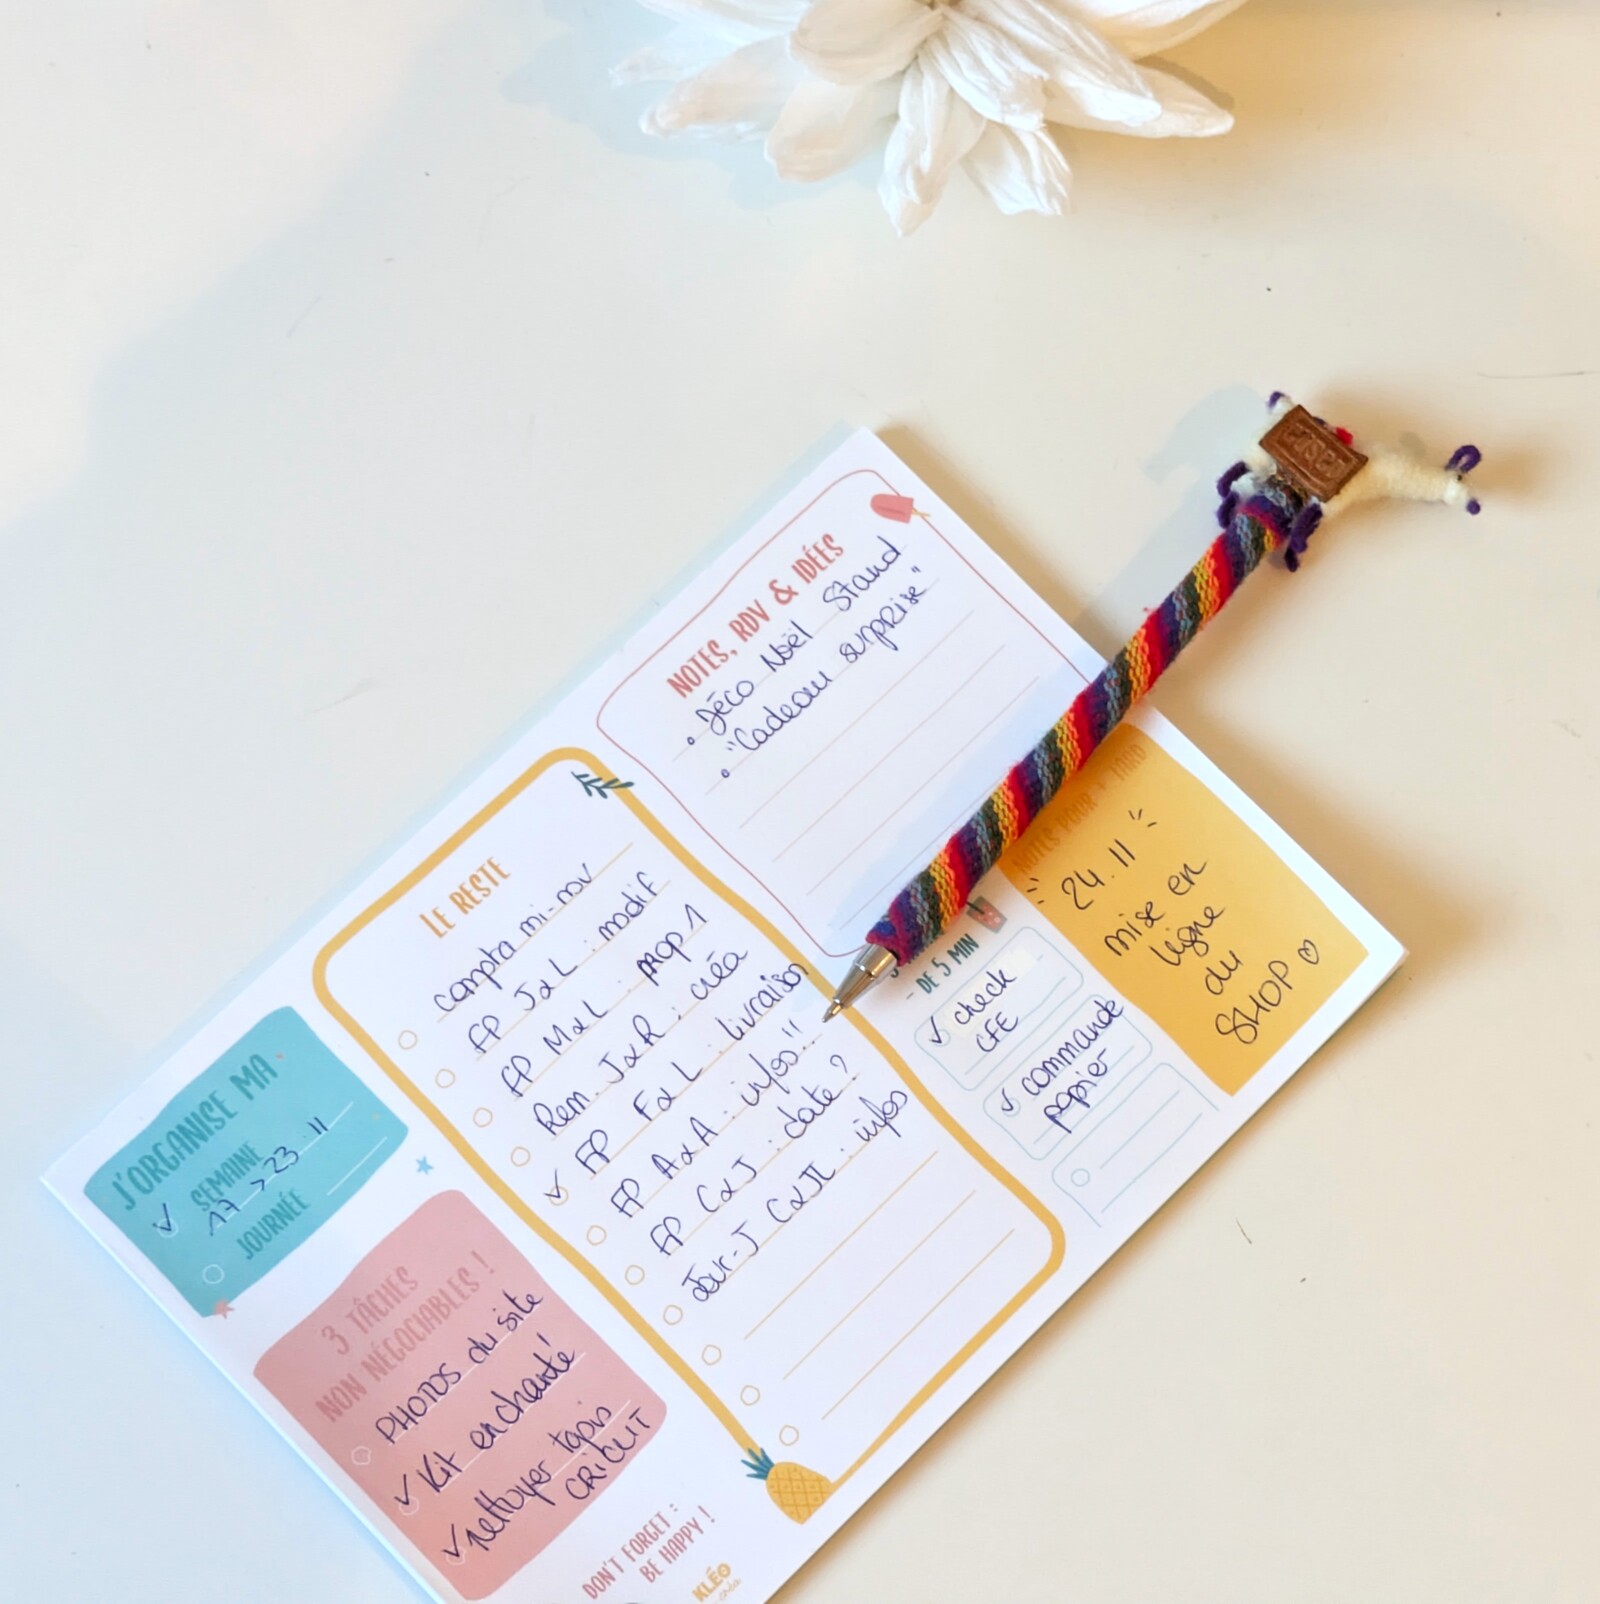 J'ORGANISE MA
SEMAINE
17 > 23.11
JOURNÉE
3 TÂCHES
NON NÉGOCIABLES !
PHOTOS du site
Kit enchanté
nettoyer tapis
CRICUT
LE RESTE
compta mi-nov
FP J&L : modif
FP M&L : prop 1
Rem. J&R : créa
FP F&L : livraison
FP A&A : infos!!
FP C&J : date ?
Jour-J C&JL : infos
NOTES, RDV & IDÉES
• Déco Noël Stand
• "Cadeau surprise"
- DE 5 MIN
check
CFE
commande
papier
NOTES POUR + TARD
24.11
mise en
ligne
du
SHOP ♡
DON'T FORGET :
BE HAPPY !
KLÉO